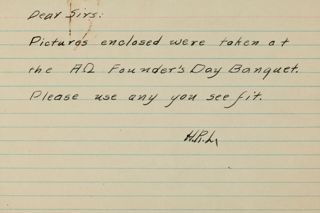 Dear Sirs:
Pictures enclosed were taken at
the ΑΩ Founder's Day Banquet.
Please use any you see fit.
H.R.L.